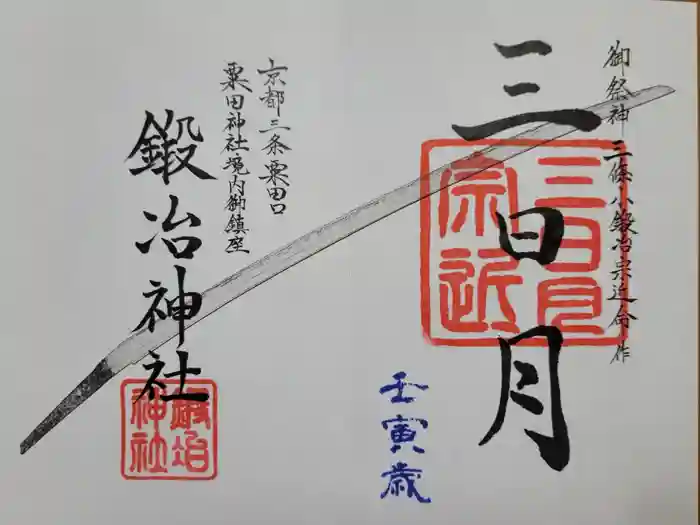 御祭神 三條小鍛冶宗近命作
三日月
三日月
宗近
壬寅歳
京都三条粟田口
粟田神社境内御鎮座
鍛冶神社
鍛冶
神社